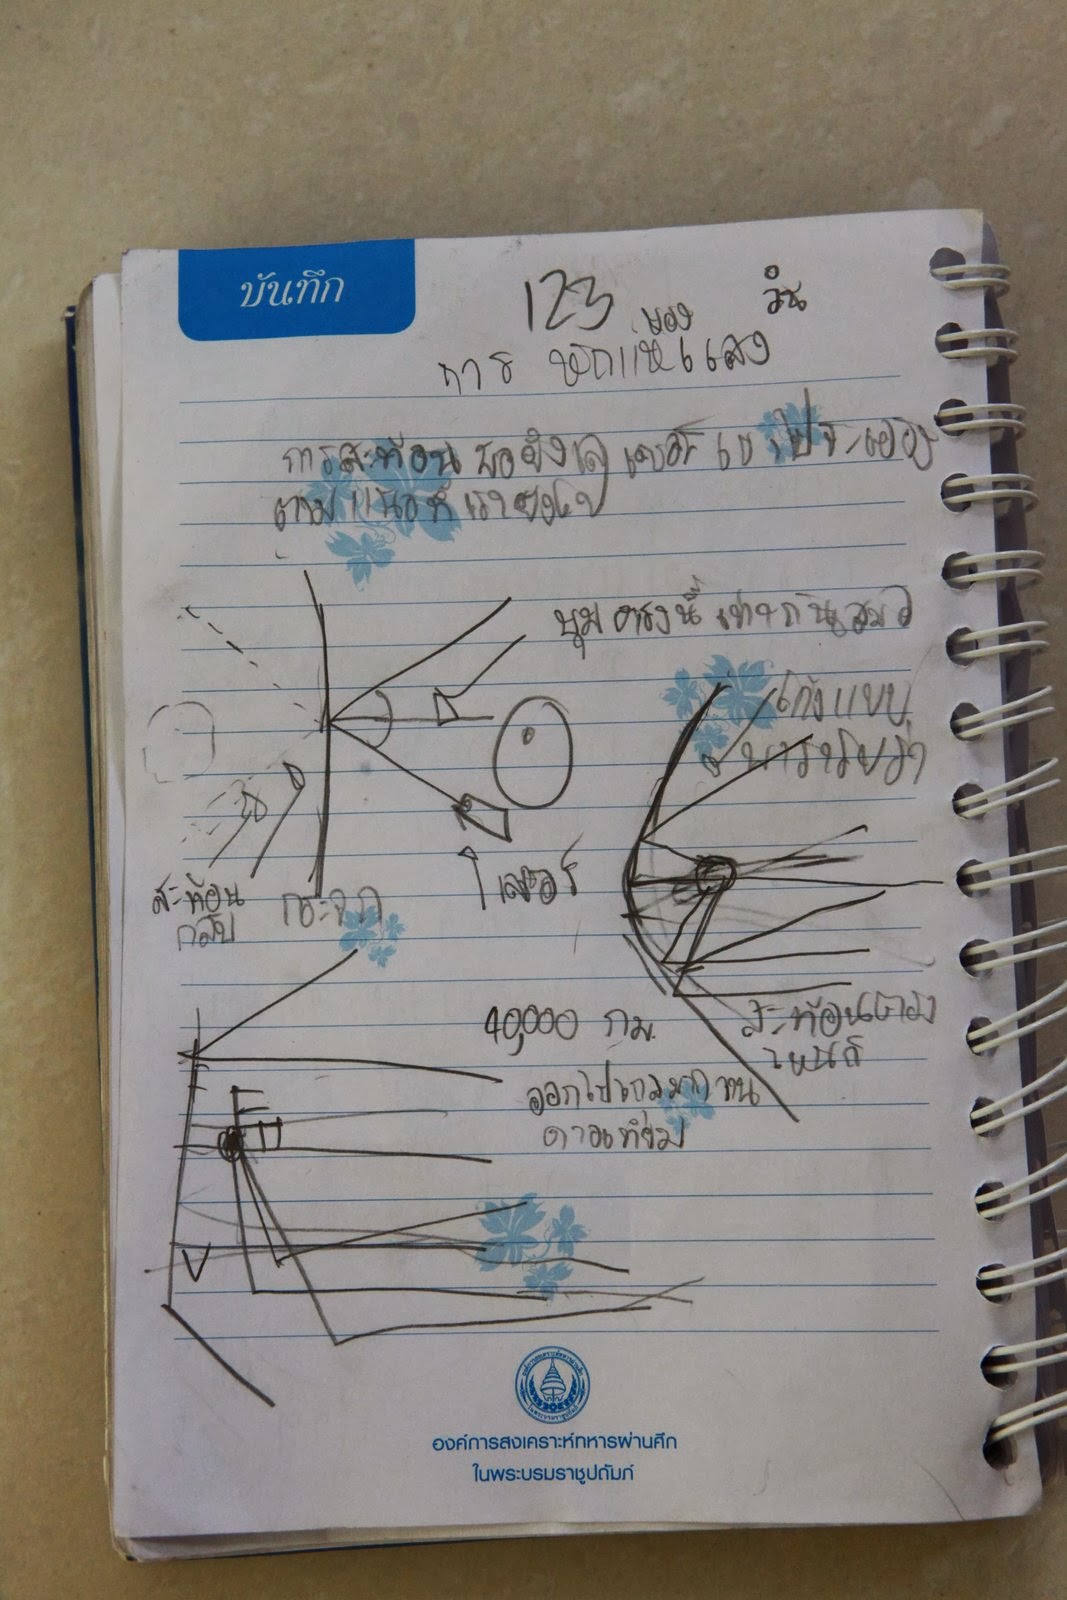 บันทึก
123
วัน
ของ
การ หักเหแสง
การสะท้อน พอยิงเลเซอร์ เข้าไปจะ
ตามแนวที่เรายิงไป
มุมตรงนี้เท่ากันเสมอ
โค้งแบบ
พาราโบร่า
เลเซอร์
สะท้อน
กลับ
กระจก
40,000 กม.
สะท้อนตรง
ออกไปไกลมาก
ดาวเทียม
องค์การสงเคราะห์ทหารผ่านศึก
ในพระบรมราชูปถัมภ์